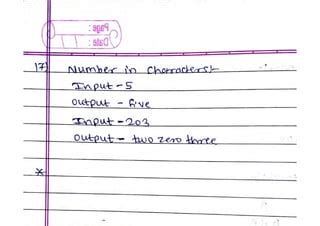 Page:
Date:
17) Number in Characters:-
Input - 5
output - five
Input - 203
output - two zero three
*